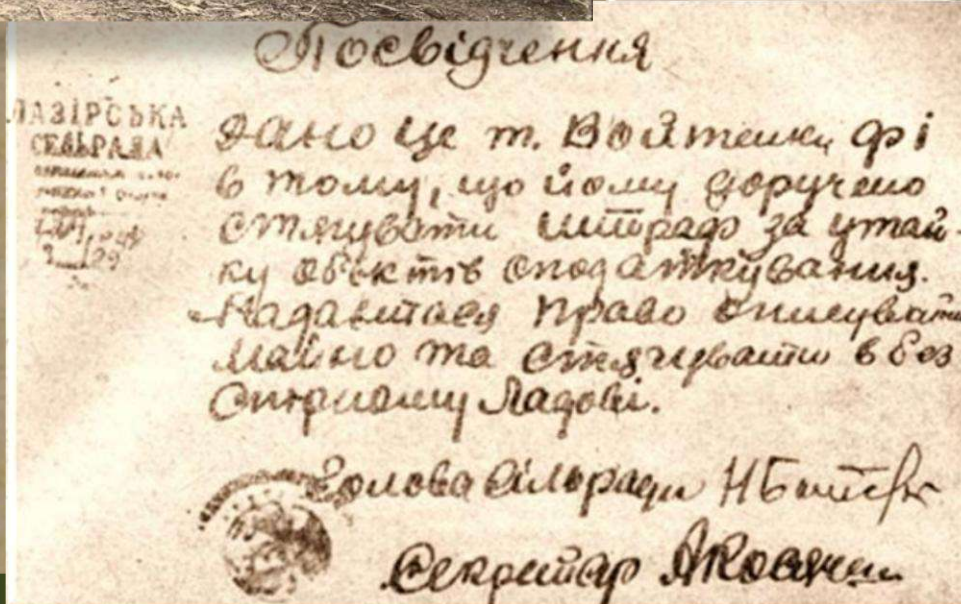 Посвідчення
ЛАЗІРСЬКА
СЕЛЬРАДА
Дано це т. Войтенку Ф і
в тому, що йому доручено
стягувати штраф за утай-
ку обєктів оподаткування.
Надаеться право описувати
майно та стягувати в без
спірному
Голова сільради Н
Секретар